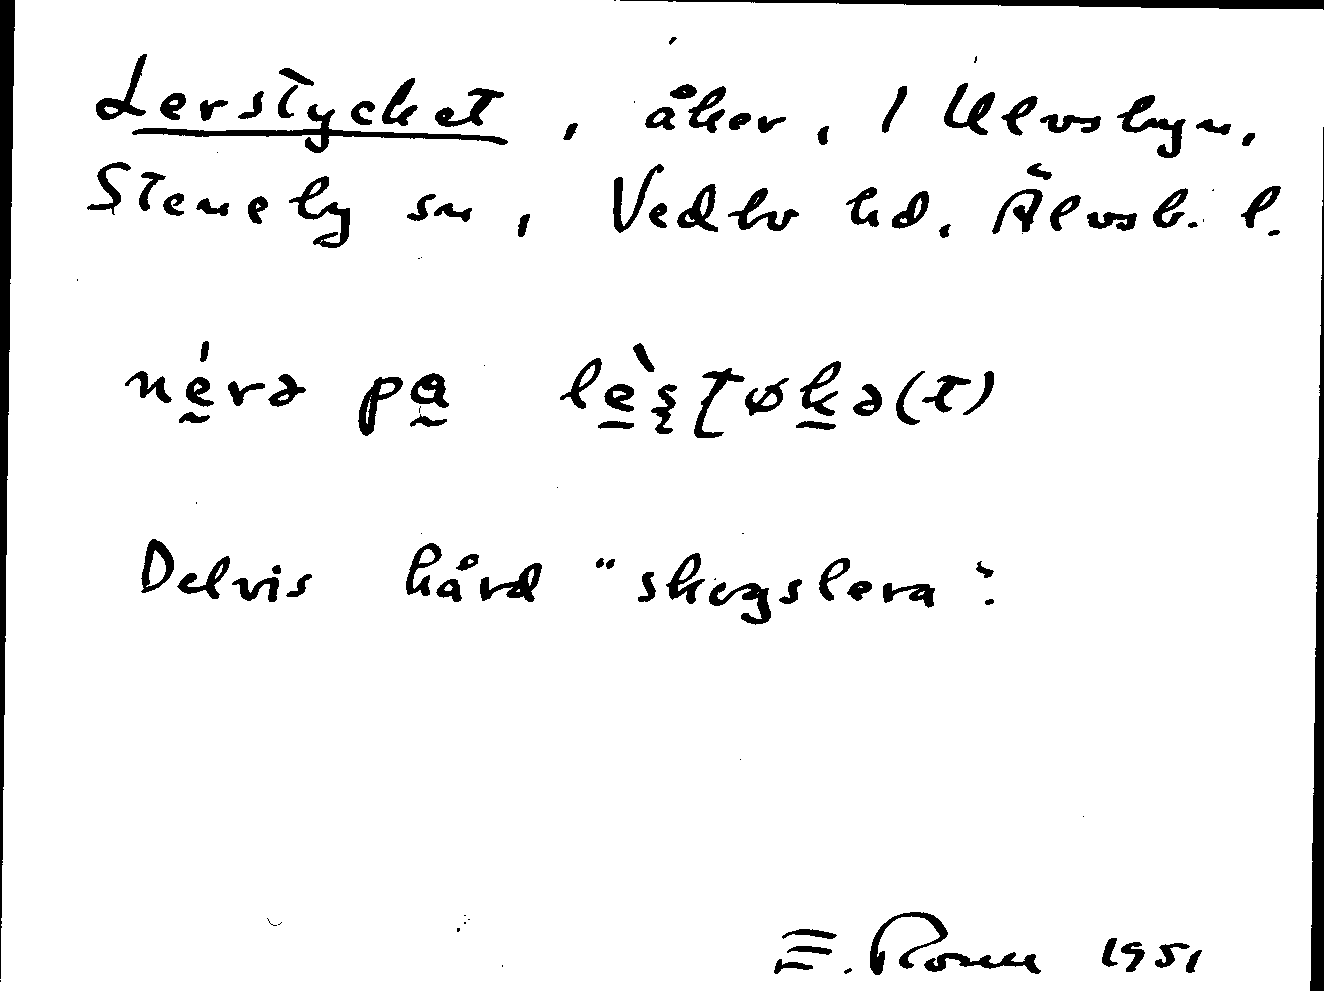 Lerstycket, åker, 1 Ulvsbyn,
Steneby sn, Vedbo hd, Älvsb. l.
nḛ́rə pa̰ lè̱ʂʈøḵə(t)
Delvis hård "skogslera".
E. Rosell 1951